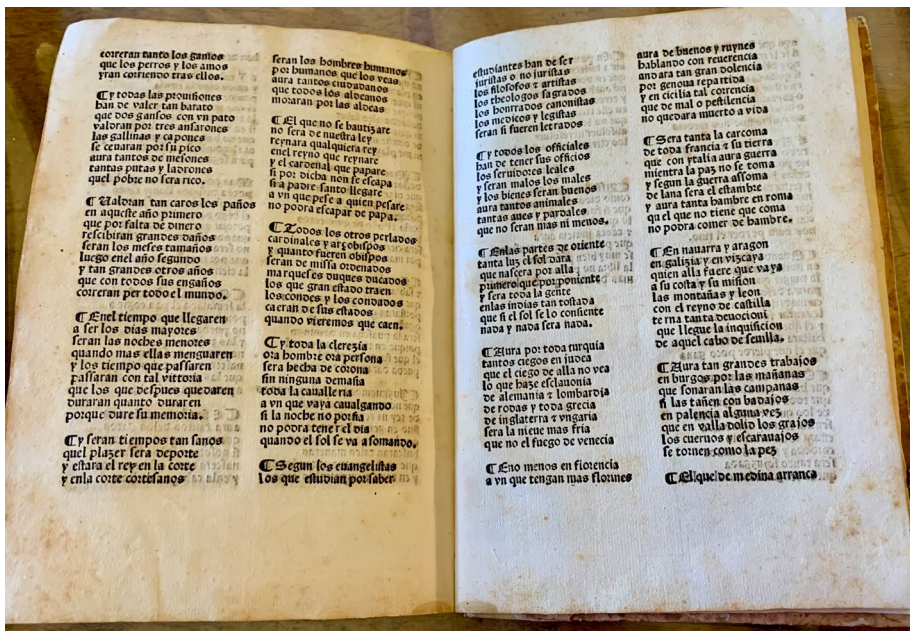 correran tanto los gamos
que los perros y los amos
yran corriendo tras ellos.
❡ Y todas las prouisiones
han de valer tan barato
que dos gansos con vn pato
valdran por tres ansarones
las gallinas y capones
se cenaran por su pico
aura tantos de mesones
tantas putas y ladrones
quel pobre no sera rico.
❡ Ualdran tan caros los paños
en aqueste año primero
que por falta de dinero
rescibiran grandes daños
seran los meses tamaños
luego enel año segundo
y tan grandes otros años
que con todos sus engaños
correran per todo el mundo.
❡ Enel tiempo que llegaren
a ser los dias mayores
seran las noches menores
quando mas ellas menguaren
y los tiempo que passaren
passaran con tal vittoria
que los que despues quedaren
duraran quanto duraren
porque dure su memoria.
❡ Y seran tiempos tan sanos
quel plazer sera deporte
y estara el rey en la corte
y enla corte cortesanos
seran los hombres humanos
por humanos que los veas
aura tantos ciudadanos
que todos los aldeanos
moraran por las aldeas
❡ El que no se bautizare
no sera de nuestra ley
reynara qualquiera rey
enel reyno que reynare
y el cardenal que papare
si por dicha non se escapa
si a padre santo llegare
a vn que pese a quien pesare
no podra escapar de papa.
❡ Todos los otros perlados
cardinales y arçobispos
y quanto fueren obispos
seran de missa ordenados
marqueses duques ducados
los que gran estado traen
los condes y los condados
caeran de sus estados
quando vieremos que caen.
❡ Y toda la clerezia
ora hombre ora persona
sera hecha de corona
sin ninguna demasia
toda la caualleria
a vn que vaya caualgando
si la noche no porfia
no podra tener el dia
quando el sol se va asomando.
❡ Segun los euangelistas
los que estudian por saber
estudiantes han de ser
juristas o no juristas
los filosofos z artistas
los theologos sagrados
los honrrados canonistas
los medicos y legistas
seran si fueren letrados
❡ Y todos los officiales
han de tener sus officios
los seruidores leales
y seran malos los males
y los bienes seran buenos
aura tantos animales
tantas aues y pardales
que no seran mas ni menos.
❡ Enlas partes de oriente
tanta luz el sol dara
que nascera por alla
primero que por poniente
y sera toda la gente
enlas indias tan tostada
que si el sol se lo consiente
nada y nada sera nada.
❡ Aura por toda turquia
tantos ciegos en judea
que el ciego de alla no vea
lo que haze esclauonia
de alemania z lombardia
de rodas y toda grecia
de inglaterra z vngaria
sera la nieue mas fria
que no el fuego de venecia
❡ Eno menos en florencia
a vn que tengan mas florines
aura de buenos y ruynes
hablando con reuerencia
andara tan gran dolencia
por genoua repartida
y en cicilia tal correncia
que de mal o pestilencia
no quedara muerto a vida
❡ Sera tanta la carcoma
de toda francia z su tierra
que con ytalia aura guerra
mientra la paz no se toma
y segun la guerra assoma
de lana sera el estambre
y aura tanta hambre en roma
qu el que no tiene que coma
no podra comer de hambre.
❡ En nauarra y aragon
en galizia y en vizcaya
quien alla fuere que vaya
a su costa y su mision
las montañas y leon
con el reyno de castilla
terna tanta deuocioni
que llegue la inquisicion
de aquel cabo de seuilla.
❡ Aura tan grandes trabajos
en burgos por las mañanas
que sonaran las campanas
si las tañen con badajos
en palencia alguna vez
que en valladolio los grajos
los cueruos y escarauajos
se tornen como la pez
❡ El que de medina arranca